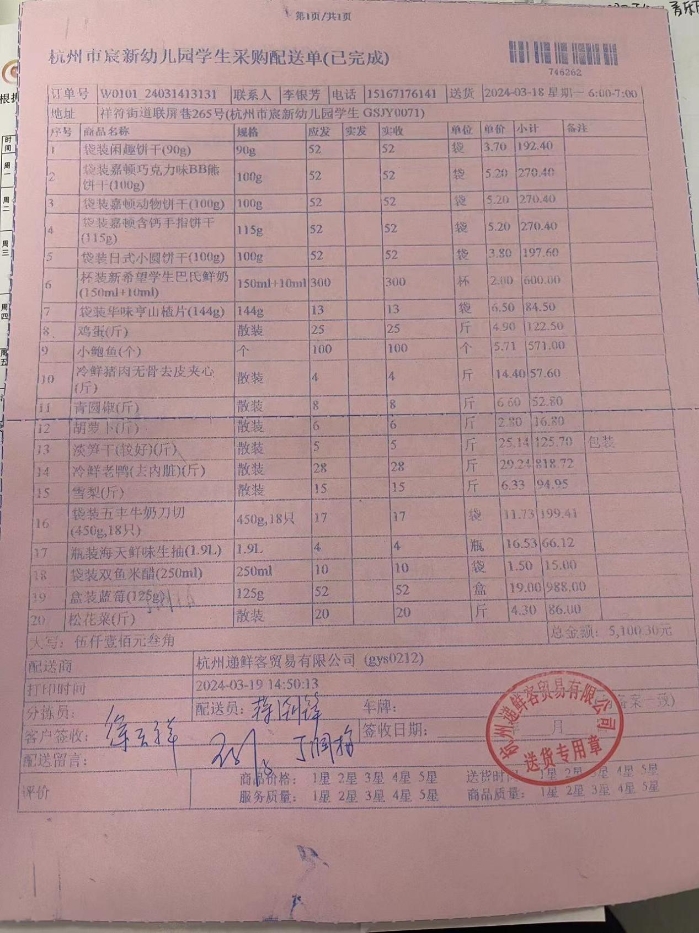 第1页/共1页
杭州市宸新幼儿园学生采购配送单(已完成)
746262
订单号 W0101_24031413131 联系人 李银芳 电话 15167176141 送货 2024-03-18 星期一 6:00-7:00
地址 祥符街道联屏巷265号(杭州市宸新幼儿园学生 GSJY0071)
序号 商品名称 规格 应发 实发 实收 单位 单价 小计 备注
1 袋装闲趣饼干(90g) 90g 52 52 袋 3.70 192.40
2 袋装嘉顿巧克力味BB熊饼干(100g) 100g 52 52 袋 5.20 270.40
3 袋装嘉顿动物饼干(100g) 100g 52 52 袋 5.20 270.40
4 袋装嘉顿含钙手指饼干(115g) 115g 52 52 袋 5.20 270.40
5 袋装日式小圆饼干(100g) 100g 52 52 袋 3.80 197.60
6 杯装新希望学生巴氏鲜奶(150ml+10ml) 150ml+10ml 300 300 杯 2.00 600.00
7 袋装华味亨山楂片(144g) 144g 13 13 袋 6.50 84.50
8 鸡蛋(斤) 散装 25 25 斤 4.90 122.50
9 小鲍鱼(个) 个 100 100 个 5.71 571.00
10 冷鲜猪肉无骨去皮夹心(斤) 散装 4 4 斤 14.40 57.60
11 青圆椒(斤) 散装 8 8 斤 6.60 52.80
12 胡萝卜(斤) 散装 6 6 斤 2.80 16.80
13 淡笋干(较好)(斤) 散装 5 5 斤 25.14 125.70 包装
14 冷鲜老鸭(去内脏)(斤) 散装 28 28 斤 29.24 818.72
15 雪梨(斤) 散装 15 15 斤 6.33 94.95
16 袋装五丰牛奶刀切(450g,18只) 450g,18只 17 17 袋 11.73 199.41
17 瓶装海天鲜味生抽(1.9L) 1.9L 4 4 瓶 16.53 66.12
18 袋装双鱼米醋(250ml) 250ml 10 10 袋 1.50 15.00
19 盒装蓝莓(125g) 125g 52 52 盒 19.00 988.00
20 松花菜(斤) 散装 20 20 斤 4.30 86.00
大写: 伍仟壹佰元叁角 总金额: 5,100.30元
配送商 杭州递鲜客贸易有限公司 (gys0212)
打印时间 2024-03-19 14:50:13
分拣员: 配送员: 车牌:
客户签收: 签收日期: 年 月
配送留言:
杭州递鲜客贸易有限公司
送货专用章
评价 商品价格: 1星 2星 3星 4星 5星 送货时 1星 2星 3星 4星 5星
服务质量: 1星 2星 3星 4星 5星 商品质量: 1星 2星 3星 4星 5星